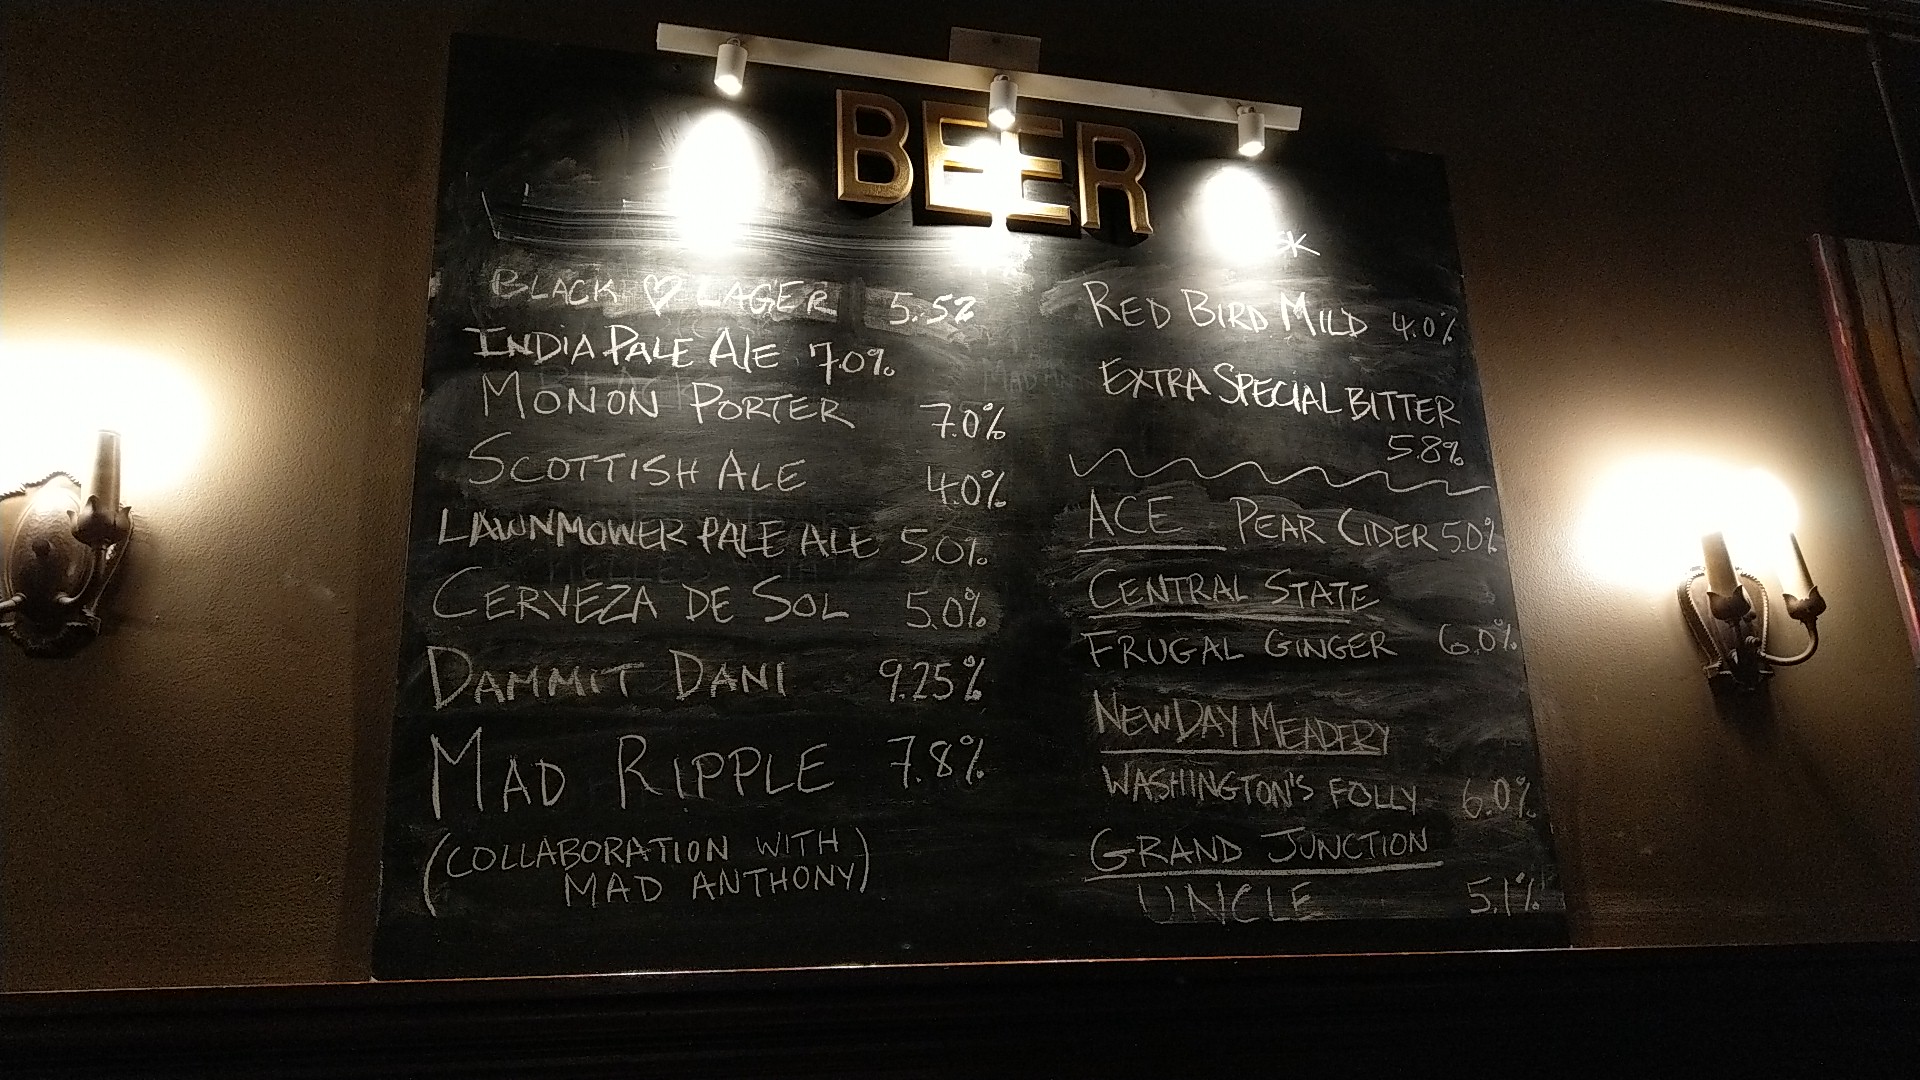 BEER
BLACK ♡ LAGER 5.52
INDIA PALE ALE 7.0%
MONON PORTER 7.0%
SCOTTISH ALE 4.0%
LAWNMOWER PALE ALE 5.0%
CERVEZA DE SOL 5.0%
DAMMIT DANI 9.25%
MAD RIPPLE 7.8%
(COLLABORATION WITH
MAD ANTHONY)
RED BIRD MILD 4.0%
EXTRA SPECIAL BITTER
5.8%
ACE PEAR CIDER 5.0%
CENTRAL STATE
FRUGAL GINGER 6.0%
NEW DAY MEADERY
WASHINGTON'S FOLLY 6.0%
GRAND JUNCTION
UNCLE 5.1%